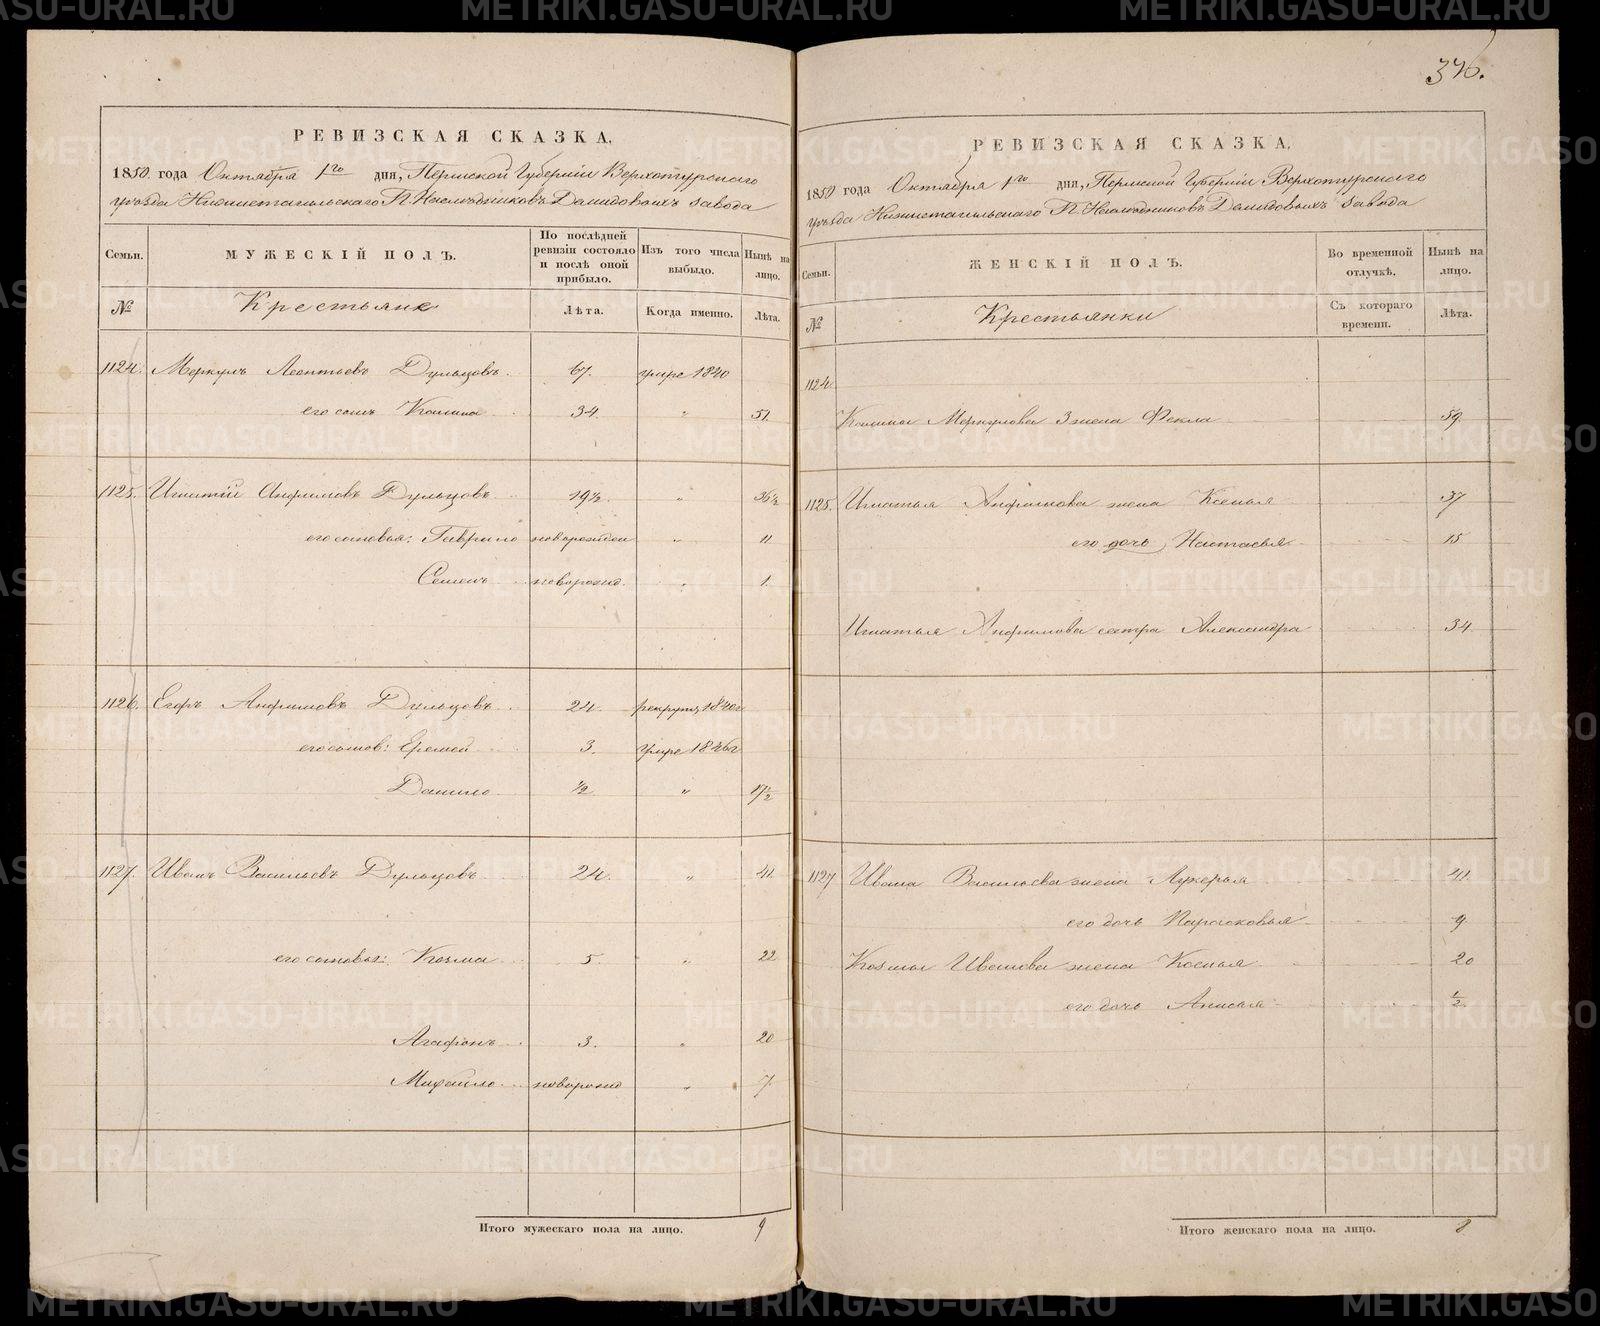 376.
РЕВИЗСКАЯ СКАЗКА,
1850. года Октября 1го дня, Пермской Губерніи Верхотурскаго
уѣзда Нижнетагильскаго П. Наслѣдниковъ Демидовыхъ завода
Семьи. МУЖЕСКІЙ ПОЛЪ. По послѣдней ревизіи состояло и послѣ оной прибыло. Изъ того числа выбыло. Нынѣ на лицо.
№ Крестьяне Лѣта. Когда именно. Лѣта.
1124. Меркулъ Леонтьевъ Дульцовъ 67. умре 1840
его сынъ 34. " 51.
1125. Игнатій Анфимовъ Дульцовъ 19½. " 36½
его сыновья: Гаврило новорожден " 11
Семенъ новорожд. " 1.
1126. Егоръ Анфимовъ Дульцовъ 24. рекрутъ 1840г
его сынов: Еремей 3. умре 1846г
Данило ½ " 17½
1127. Иванъ Васильевъ Дульцовъ 24. " 41.
его сыновья: Козма 5. " 22
Агафонъ 3. " 20
Михайло новорожд " 7.
Итого мужескаго пола на лицо. 9
РЕВИЗСКАЯ СКАЗКА,
1850 года Октября 1го дня, Пермской Губерніи Верхотурскаго
уѣзда Нижнетагильскаго П. Наслѣдниковъ Демидовыхъ завода
Семьи. ЖЕНСКІЙ ПОЛЪ. Во временной отлучкѣ. Нынѣ на лицо.
№ Крестьянки Съ котораго времени. Лѣта.
1124
Меркулова 3 жена Фекла 59.
1125. Игнатья Анфимова жена Ксенья 37
его дочь Настасья 15
Игнатья Анфимова сестра Александра 34.
1127 Ивана Васильева жена Лукерья 41.
его дочь Парасковья 9
Козмы Иванова жена Ксенья 20
его дочь Анисья ½
Итого женскаго пола на лицо. 8
METRIKI.GASO-URAL.RU